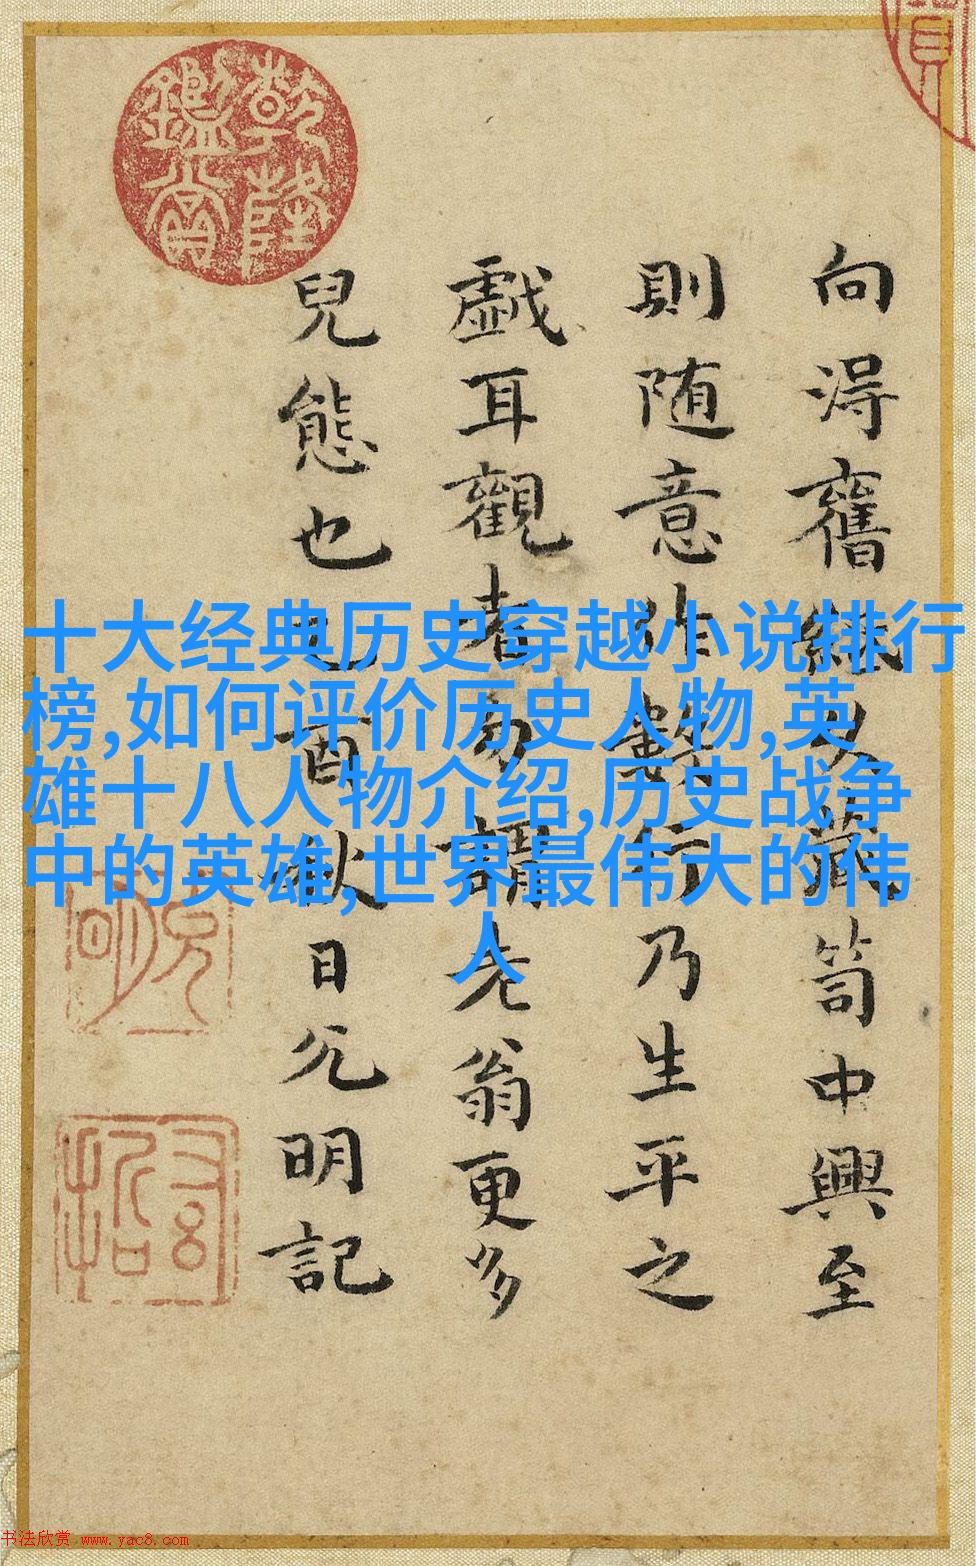 十大经典历史穿越小说排行
榜,如何评价历史人物,英
雄十八人物介绍,历史战争
中的英雄,世界最伟大的伟
人
向淂舊紙久藏笥中興至
則随意作數行乃生平之
戯耳觀者勿謂老翁更多
兒態也酉秋日允明記
乾隆
鑑賞
书法欣赏 www.yac8.com